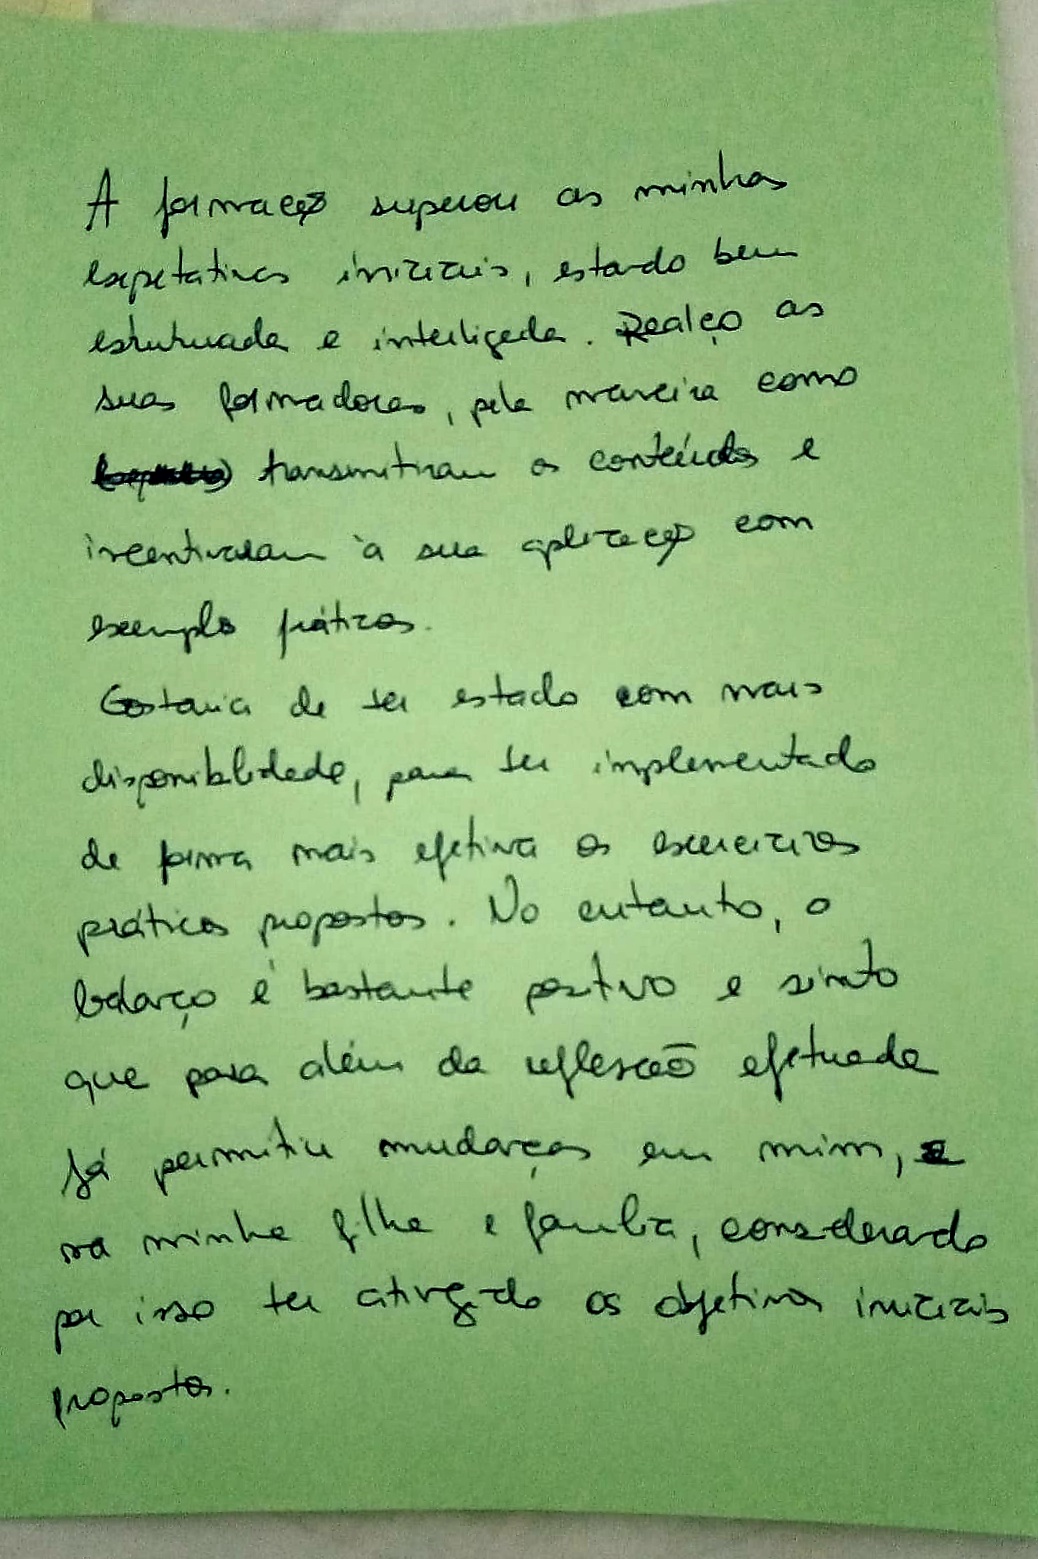 A formação superou as minhas
expetativas iniciais, estando bem
estruturada e interligada. Realço as
suas formadoras, pela maneira como
transmitiram os conteúdos e
incentivaram à sua aplicação com
exemplos práticos.
Gostaria de ter estado com mais
disponibilidade, para ter implementado
de forma mais efetiva os exercícios
práticos propostos. No entanto, o
balanço é bastante positivo e sinto
que para além da reflexão efetuada
já permitiu mudanças em mim,
na minha filha e família, considerando
por isso ter atingido os objetivos iniciais
propostos.